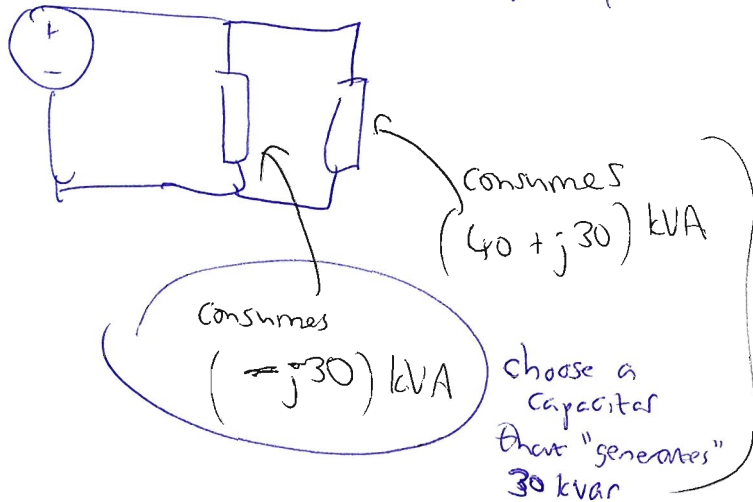 +
-
consumes
(40 + j30) kVA
consumes
(-j30) kVA
choose a
capacitor
that "generates"
30 kvar